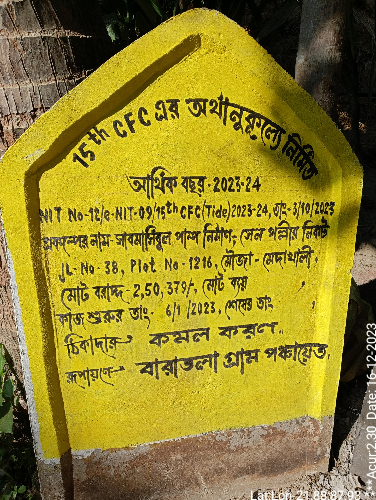 15th CFC এর অর্থানুকূল্যে নির্মিত
আর্থিক বছর - 2023-24
NIT No-12/e-NIT-09/15th CFC(Tide)2023-24, তাং-3/10/2023
প্রকল্পের নাম- সাবমার্সিবুল পাম্প নির্মাণ, সেন পল্লীর নিকট
JL-No-38, Plot No - 1216, মৌজা-
মোট বরাদ্দ - 2,50,379/-, মোট ব্যয়
কাজ শুরুর তাং- 6/1 /2023, শেষের তাং
ঠিকাদার→ কমল করণ..
রূপায়ণে→ বারাতলা গ্রাম পঞ্চায়েত,
Date, 16-12-2023
Acur2.30
Lat Lon